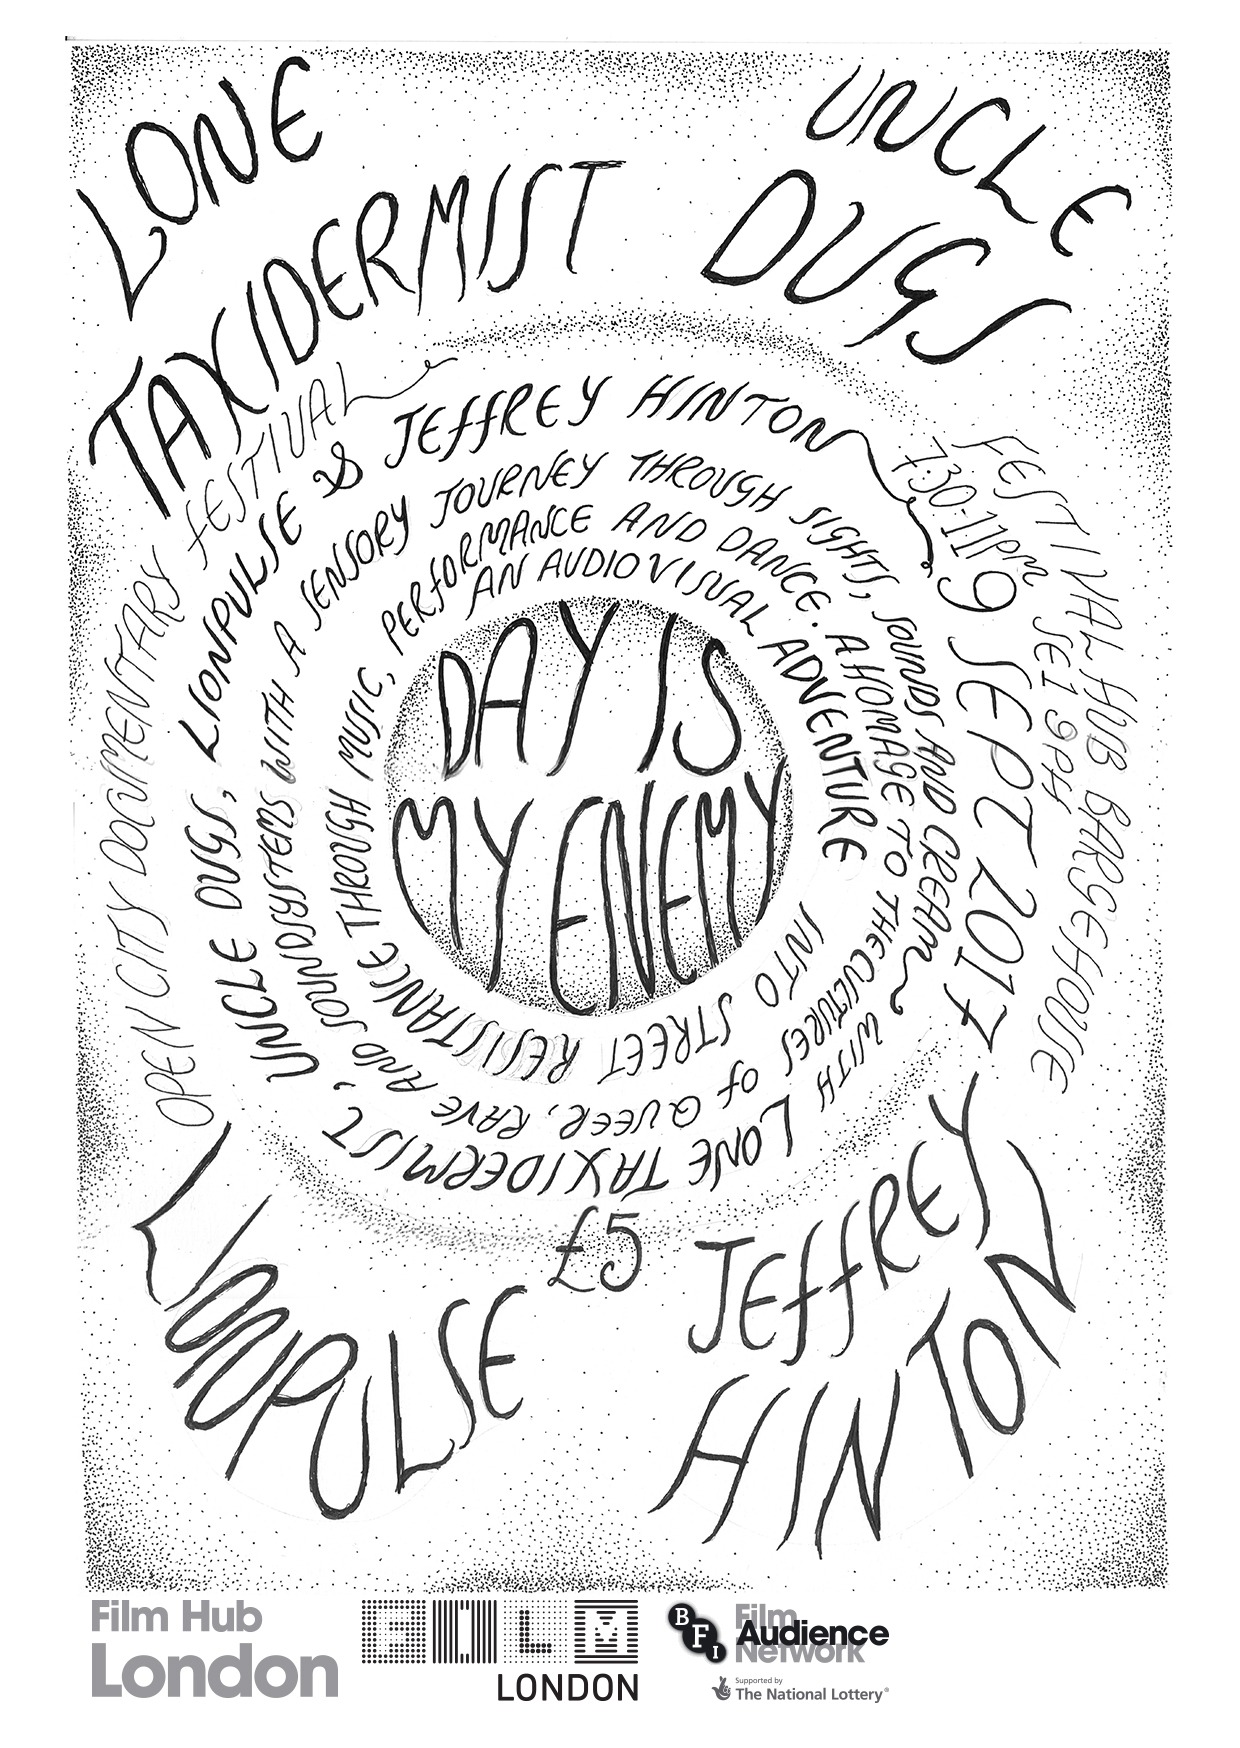 LONE
TAXIDERMIST
UNCLE
DUGS
OPEN CITY DOCUMENTARY FESTIVAL
FESTIVAL HUB BARGEHOUSE
SE1 9PH
7:30-11PM
9 SEPT 2017
DAY IS
MY ENEMY
AN AUDIOVISUAL ADVENTURE
INTO STREET RESISTANCE THROUGH MUSIC, PERFORMANCE AND DANCE. A HOMAGE TO THE CULTURES OF QUEER, RAVE AND SOUNDSYSTEMS WITH A SENSORY JOURNEY THROUGH SIGHTS, SOUNDS AND CREAM
WITH LONE TAXIDERMIST, UNCLE DUGS, LIONPULSE & JEFFREY HINTON
LIONPULSE
£5
JEFFREY
HINTON
Film Hub
London
FILM
LONDON
BFI
Film
Audience
Network
Supported by
The National Lottery®